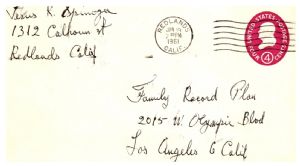 K. Espinoza
1312 Calhoun St
Redlands Calif
REDLANDS
PM
1961
CALIF.
UNITED STATES POSTAGE
4
Family Record Plan
2015 W Olympic Blvd
Los Angeles 6 Calif